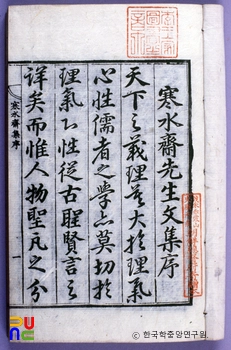 寒水齋先生文集序
天下之義理莫大於理氣
心性儒者之學亦莫切於
理氣心性從古聖賢言之
詳矣而惟人物聖凡之分
寒水齋集序
一
© 한국학중앙연구원